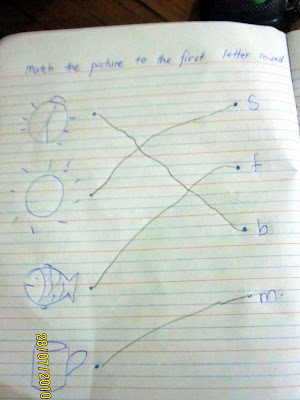 Match the picture to the first letter sound
s
f
b
m